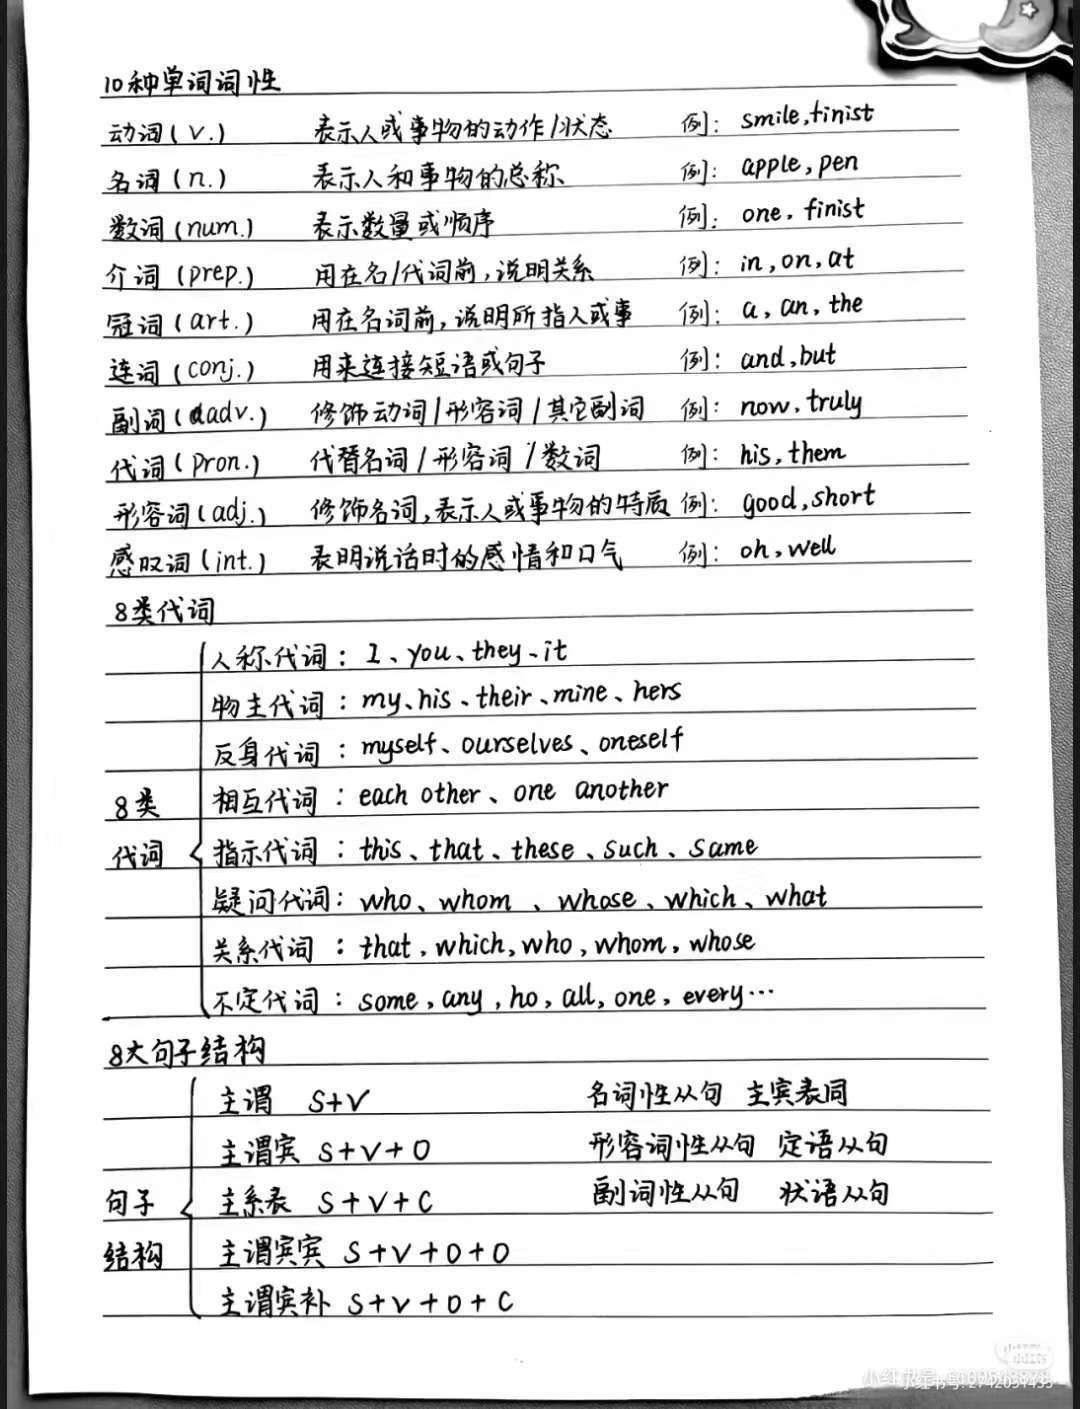 10种单词词性
动词(v.) 表示人或事物的动作/状态 例: smile,finist
名词(n.) 表示人和事物的总称 例: apple,pen
数词(num.) 表示数量或顺序 例: one,finist
介词(prep.) 用在名/代词前,说明关系 例: in,on,at
冠词(art.) 用在名词前,说明所指人或事 例: a,an,the
连词(conj.) 用来连接短语或句子 例: and,but
副词(adv.) 修饰动词/形容词/其它副词 例: now,truly
代词(pron.) 代替名词/形容词/数词 例: his,them
形容词(adj.) 修饰名词,表示人或事物的特质 例: good,short
感叹词(int.) 表明说话时的感情和口气 例: oh,well
8类代词
人称代词: I、you、they、it
物主代词: my、his、their、mine、hers
反身代词: myself、ourselves、oneself
8类 相互代词: each other、one another
代词 指示代词: this、that、these、such、same
疑问代词: who、whom、whose、which、what
关系代词: that,which,who,whom,whose
不定代词: some,any,ho,all,one,every…
8大句子结构
主谓 S+V 名词性从句 主宾表同
主谓宾 S+V+O 形容词性从句 定语从句
句子 主系表 S+V+C 副词性从句 状语从句
结构 主谓宾宾 S+V+O+O
主谓宾补 S+V+O+C